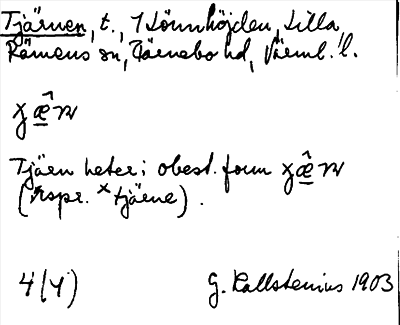 Tjärnen, t., 1 Lönnhöjden, Lilla
Rämens sn, Färnebo hd, Värml. l.
Tjärn heter i obest. form
(urspr. ˣtjärne).
4 (4)
G. Kallstenius 1903